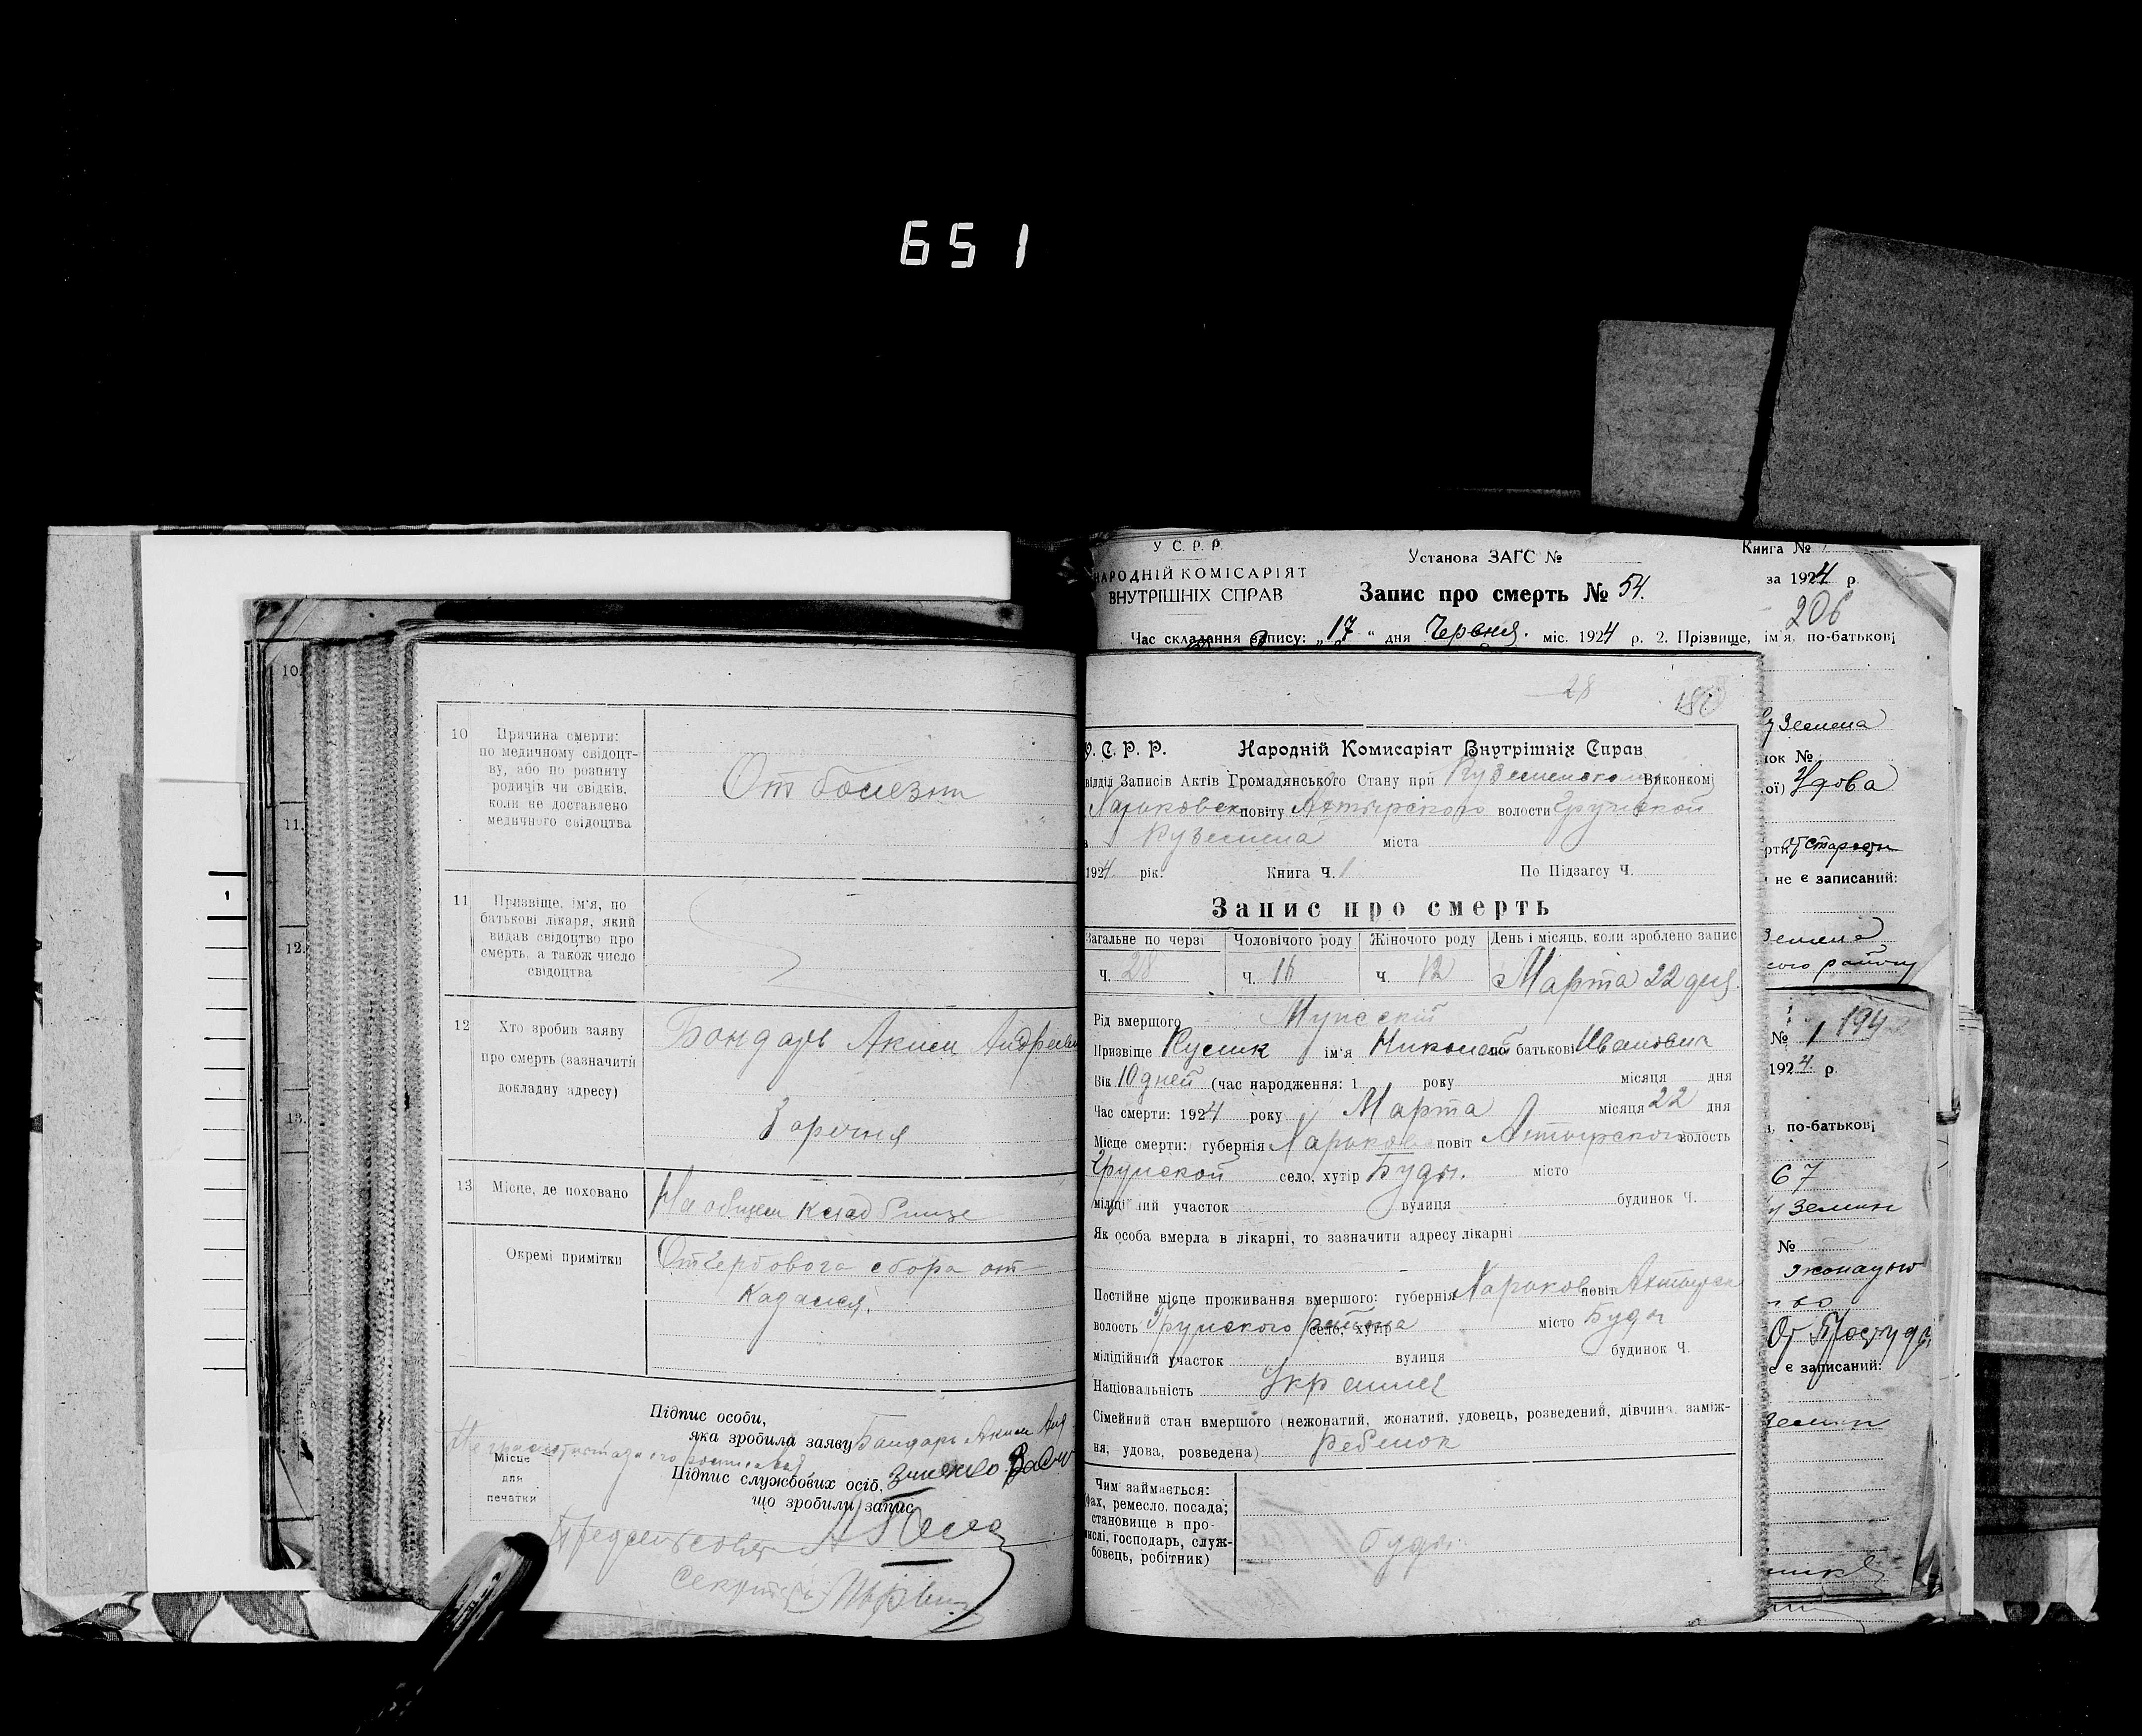 651
10
Причина смерти:
по медичному свідоцт-
ву, або по розпиту
родичів чи свідків,
коли не доставлено
медичного свідоцтва
От болезни
11
Призвіще, ім'я, по
батькові лікаря, який
видав свідоцтво про
смерть, а також число
свідоцтва
12
Хто зробив заяву
про смерть (зазначити
докладну адресу)
Бондарь Аким Андреев
Заречня
13
Місце, де поховано
На общем кладбище
Окремі примітки
От гербового сбора от-
Казался.
Підпис особи,
яка зробила заяву Бондарь Аким Анд
Місце
для
печатки
Підпис службових осіб,
що зробили запис
Секретарь
10
11.
12.
13.
У С. Р. Р.
НАРОДНІЙ КОМІСАРІЯТ
ВНУТРІШНІХ СПРАВ
Установа ЗАГС №
Запис про смерть № 54.
Книга №
за 1924 р.
206
Час складання запису: „17“ дня Червня. міс. 1924 р. 2. Прізвище, ім'я, по-батькові
28
У. С. Р. Р. Народній Комисаріят Внутрішніх Справ
відділ Записів Актів Громадянського Стану при Куземенском Виконкомі
Харьковск повіту Ахтырского волости Грунской
Куземена міста
1924 рік. Книга Ч. 1 По Підзагсу Ч.
Запис про смерть
Загальне по черзі Чоловічого роду Жіночого роду День і місяць, коли зроблено запис
ч. 28 ч. 16 ч. 12 Марта 22 дня.
Рід вмершого Мужский
Призвіще Кулик ім'я Николай по батькові Иванович
Вік 10 дней (час народження: 1 року місяця дня
Час смерти: 1924 року Марта місяця 22 дня
Місце смерти: губернія Харьков повіт Ахтырского волость
Грунской село, хутір Буды. місто
міліційний участок вулиця будинок Ч.
Як особа вмерла в лікарні, то зазначити адресу лікарні
Постійне місце проживання вмершого: губернія Харьков повіт Ахтырск
волость Грунского района село, хутір місто Буды
міліційний участок вулиця будинок Ч.
Національність
Сімейний стан вмершого (нежонатий, жонатий, удовець, розведений, дівчина, заміж-
ня, удова, розведена) ребенок
Чим займається:
фах, ремесло, посада;
становище в про-
мислі, господарь, служ-
бовець, робітник)
Буды
Куземена
нок №
ої) Удова
рти от старости
не є записаний:
земена
ского району
№ 1 194
1924 р.
по-батькові
67
№
От Простуды
е є записаний: